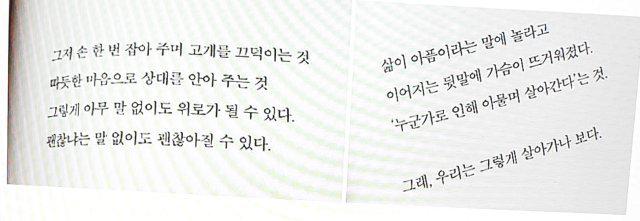 그저 손 한 번 잡아 주며 고개를 끄덕이는 것
따듯한 마음으로 상대를 안아 주는 것
그렇게 아무 말 없이도 위로가 될 수 있다.
괜찮냐는 말 없이도 괜찮아질 수 있다.
삶이 아픔이라는 말에 놀라고
이어지는 뒷말에 가슴이 뜨거워졌다.
‘누군가로 인해 아물며 살아간다’는 것.
그래, 우리는 그렇게 살아가나 보다.